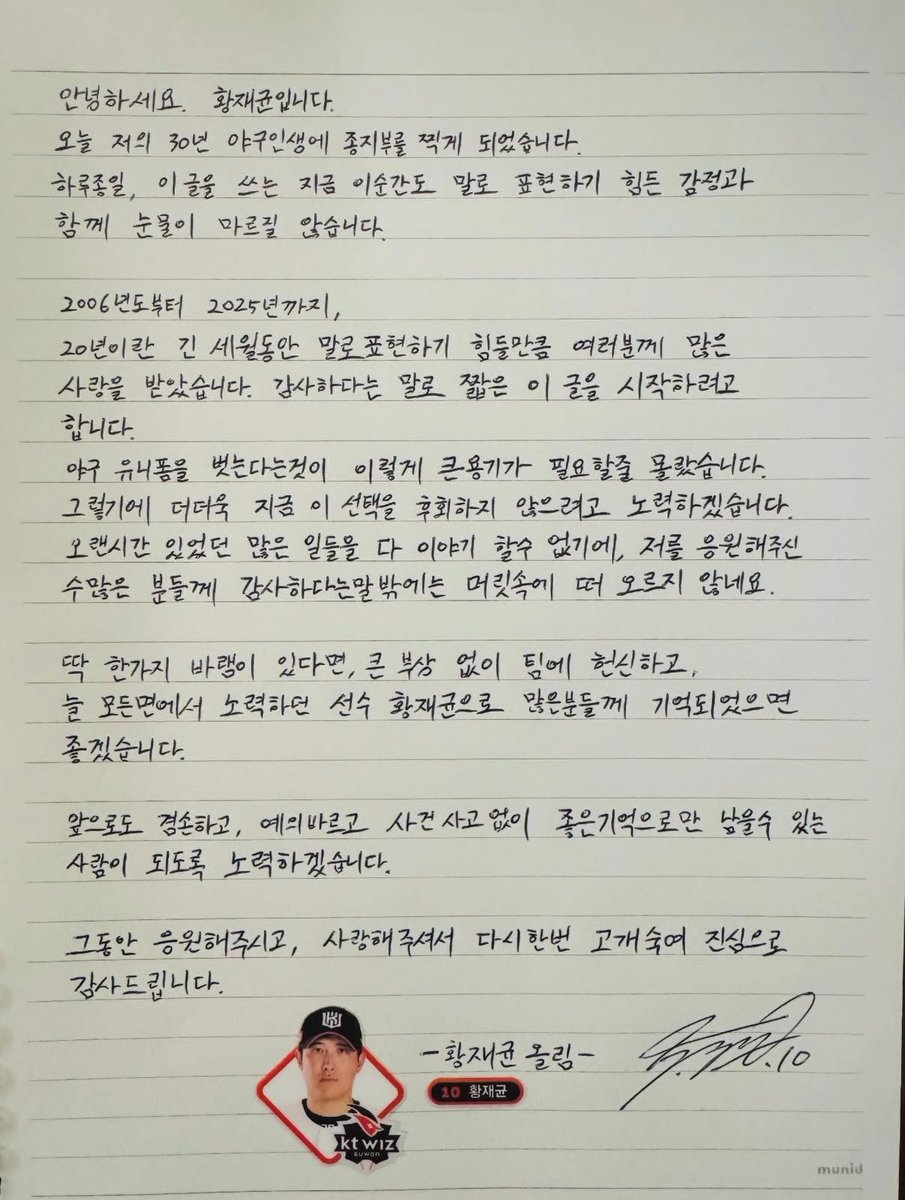 안녕하세요. 황재균입니다.
오늘 저의 30년 야구인생에 종지부를 찍게 되었습니다.
하루종일, 이글을 쓰는 지금 이순간도 말로 표현하기 힘든 감정과
함께 눈물이 마르질 않습니다.
2006년도부터 2025년까지,
20년이란 긴 세월동안 말로표현하기 힘들만큼 여러분께 많은
사랑을 받았습니다. 감사하다는 말로 짧은 이 글을 시작하려고
합니다.
야구 유니폼을 벗는다는것이 이렇게 큰용기가 필요할줄 몰랐습니다.
그렇기에 더더욱 지금 이 선택을 후회하지 않으려고 노력하겠습니다.
오랜시간 있었던 많은 일들을 다 이야기 할수 없기에, 저를 응원해주신
수많은 분들께 감사하다는말밖에는 머릿속에 떠 오르지 않네요.
딱 한가지 바램이 있다면, 큰 부상 없이 팀에 헌신하고,
늘 모든면에서 노력하던 선수 황재균으로 많은분들께 기억되었으면
좋겠습니다.
앞으로도 겸손하고, 예의바르고 사건사고없이 좋은기억으로만 남을수 있는
사람이 되도록 노력하겠습니다.
그동안 응원해주시고, 사랑해주셔서 다시한번 고개숙여 진심으로
감사드립니다.
-황재균 올림-
.10
10 황재균
kt wiz
suwon
munid